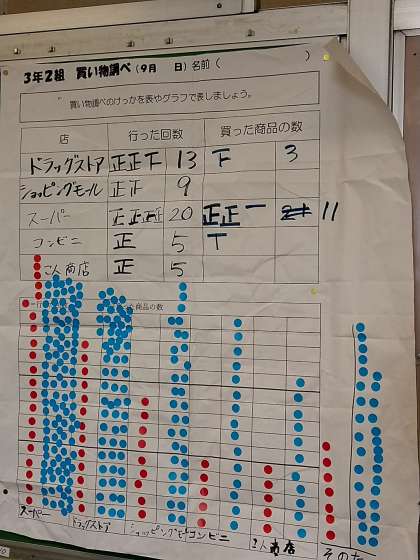 3年2組 買い物調べ (9月 日) 名前 ( )
買い物調べのけっかを表やグラフで表しましょう。
店 行った回数 買った商品の数
ドラッグストア 正正下 13 下 3
ショッピングモール 正正 9
スーパー 正正正正 20 正正一 11
コンビニ 正 5 T
こ人商店 正 5
商品の数
スーパー ドラッグストア ショッピングモール コンビニ こ人商店 そのた